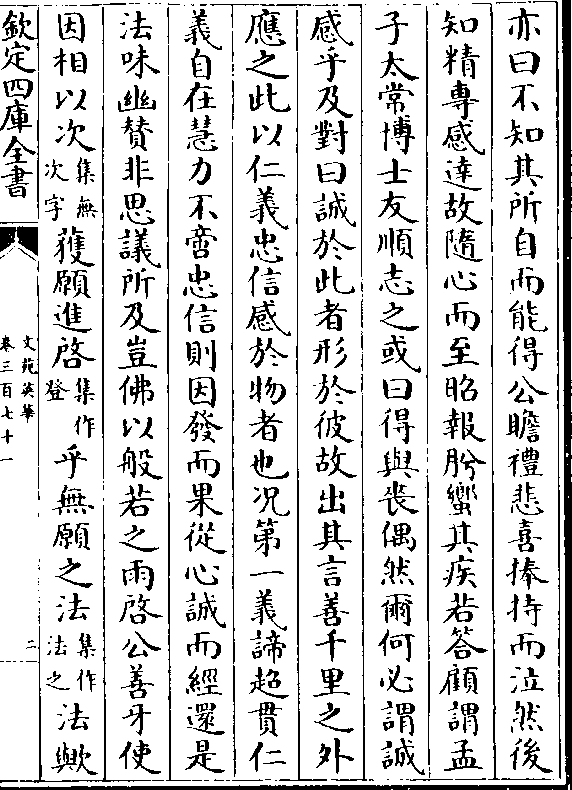 亦曰不知其所自而能得公瞻禮悲喜捧持而泣然後
知精專感達故隨心而至昭報肹蠁其疾若答顧謂孟
子太常博士友順志之或曰得與喪偶然爾何必謂誠
感乎及對曰誠於此者形於彼故出其言善千里之外
應之此以仁義忠信感於物者也况第一義諦超貫仁
義自在慧力不啻忠信則因發而果從心誠而經還是
法味幽贊非思議所及豈佛以般若之雨啓公善牙使
因相以次集無次字獲願進啓集作登乎無願之法集作法之法歟
欽定四庫全書
文苑英華
卷三百七十一
二